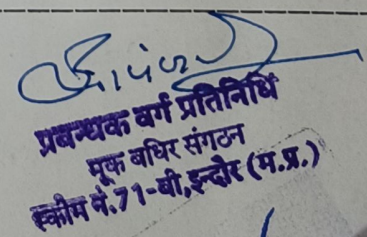 प्रबन्धक वर्ग प्रतिनिधि
मूक बधिर संगठन
स्कीम नं.71-बी,इन्दौर (म.प्र.)